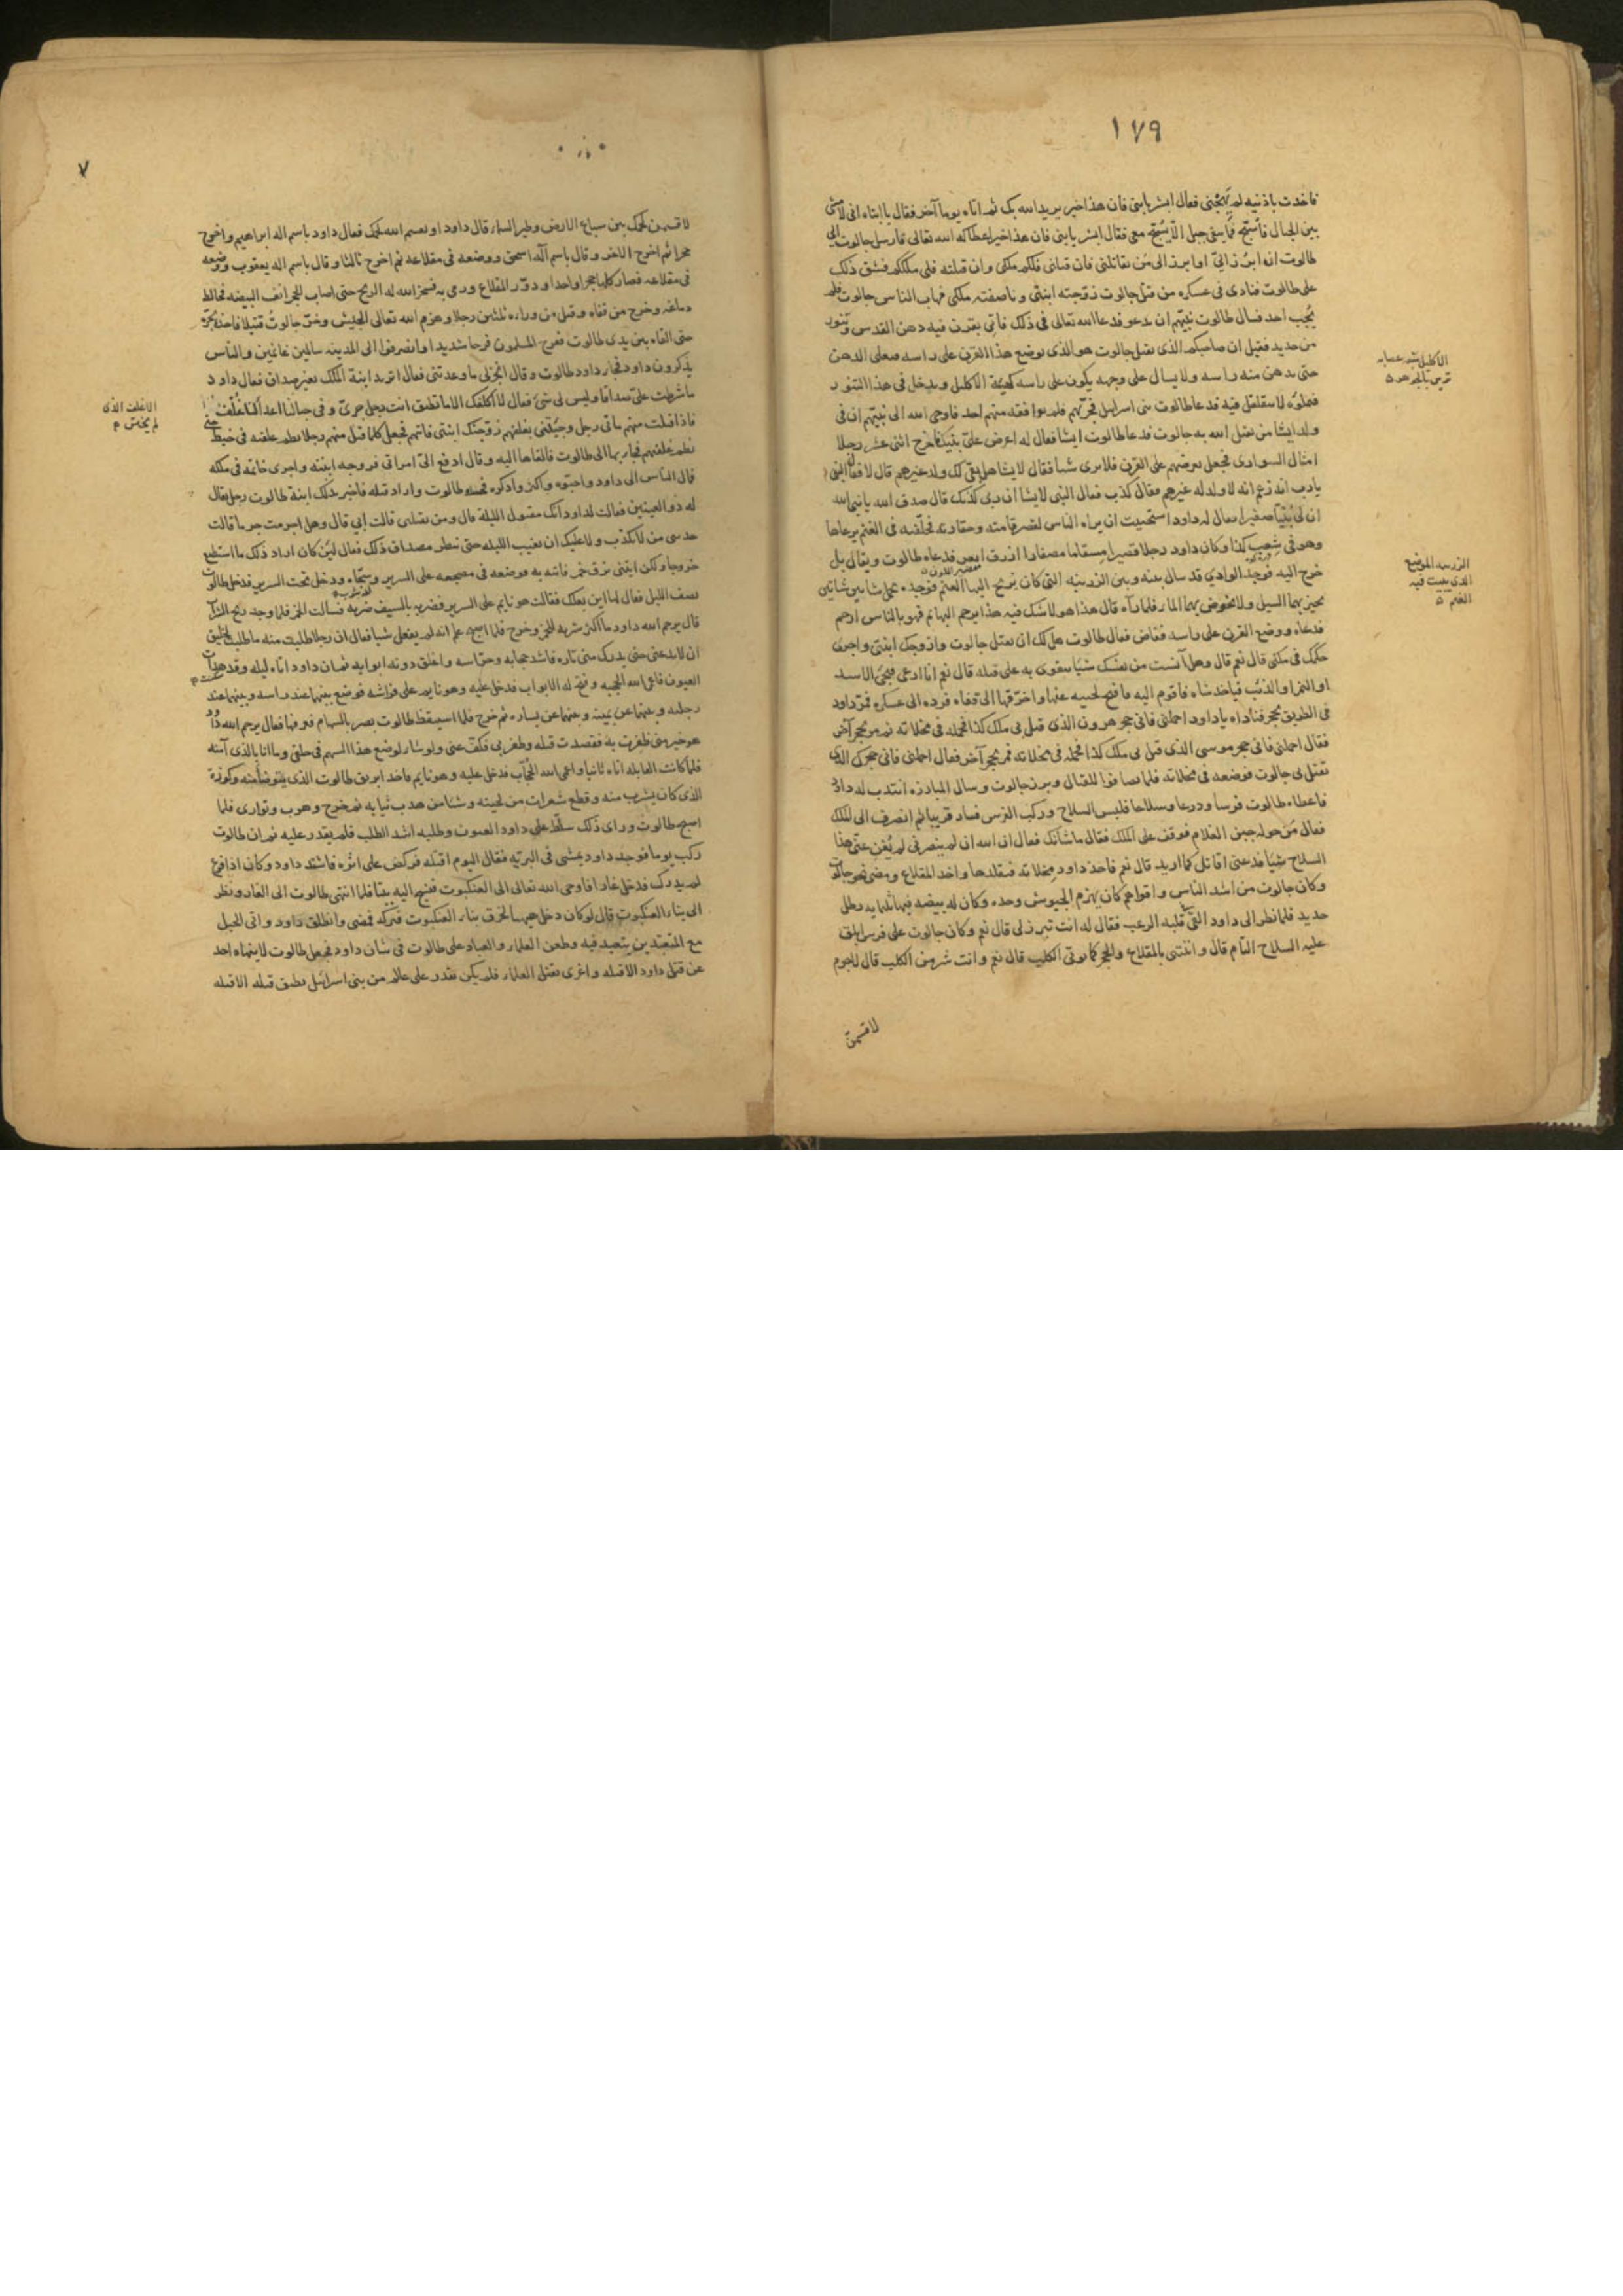 ١٧٩
فاخذت باذنيه لم يهجنى فقال ابشر يا بنى فان هذا خير يريد الله بك ثم اتاه يوما آخر فقال يا ابتاه انى لامشى
بين الجبال فأسبّح فما يبقى جبل الا يسبّح معى فقال ابشر يا بنى فان هذا خير اعطاكه الله تعالى فارسل جالوت الى
طالوت ان ابرُز اليّ او ابرز الى من يقاتلنى فان قتلنى فلكم ملكى وان قتلته فلى ملككم فشق ذلك
على طالوت فنادى فى عسكره من قتل جالوت زوّجته ابنتى وناصفته ملكى فهاب الناس جالوت فلم
يُجب احد فسال طالوت نبيّهم ان يدعو فدعا الله تعالى فى ذلك فأتى بقرن فيه دهن القدس وتنور
من حديد فقيل ان صاحبكم الذى يقتل جالوت هو الذى يوضع هذا القرن على راسه فيغلى الدهن
حتى يدهن منه راسه ولا يسال على وجهه يكون على راسه كهيئة الاكليل ويدخل فى هذا التنور
فيملؤه لا يتقلقل فيه فدعا طالوت بنى اسرايل فجرّبهم فلم يوافقه منهم احد فاوحى الله الى نبيّهم ان فى
ولد ايشا من يقتل الله به جالوت فدعا طالوت ايشا فقال له اعرض علىّ بنيك فاخرج اثنى عشر رجلا
امثال السوارى فجعل يعرضهم على القرن فلا يرى شيا فقال لايشا هل بقى لك ولد غيرهم قال لا فقال النبى
يا رب انه زعم انه لا ولد له غيرهم فقال كذب فقال النبى لايشا ان ربى كذبك قال صدق الله يا نبى الله
ان لى بُنيّا صغيرا يقال له داود استحييت ان يراه الناس لقصر قامته وحقارته فخلّفته فى الغنم يرعاها
وهو فى شِعب كذا وكان داود رجلا قصيرا مسقاما مصفارا ازرق امعر فدعاه طالوت ويقال بل
خرج اليه فوجد الوادي قد سال بينه وبين الزريبه التى كان يريح اليها الغنم فوجده يحمل شاتين شاتين
يجيز بهما السيل ولا يخوض بهما الماء فلما رآه قال هذا هو لا شك فيه هذا يرحم البهائم فهو بالناس ارحم
فدعاه ووضع القرن على راسه ففاض فقال طالوت هل لك ان تقتل جالوت وازوجك ابنتى واجرى
حكمك فى ملكى قال نعم قال وهل آنست من نفسك شيا تتقوى به على قتله قال نعم انا ارعى فيجئ الاسد
او النمر او الذئب فياخذ شاه فاقوم اليه فافتح لحييه عنها واخرقها الى قفاه فرده الى عسكره فمرّ داود
فى الطريق بحجر فناداه يا داود احملنى فانى حجر هرون الذى قتل بى ملك كذا فحمله فى مخلاته ثم مر بحجر آخر
فقال احملنى فانى حجر موسى الذى قتل بى ملك كذا فحمله فى مخلاته فمر بحجر آخر فقال احملنى فانى حجرك الذى
تقتل بى جالوت فوضعه فى مخلاته فلما تصافوا للقتال وبرز جالوت وسال المبارزه انتدب له داود
فاعطاه طالوت فرسا ودرعا وسلاحا فلبس السلاح وركب الفرس فسار قريبا ثم انصرف الى الملك
فقال من حوله جبن الغلام فوقف على الملك فقال ماشانك فقال ان الله ان لم ينصرنى لم يُغن عنى هذا
السلاح شيا فدعنى اقاتل كما اريد قال نعم فاخذ داود مخلاته فتقلدها واخذ المقلاع ومضى نحو جالوت
وكان جالوت من اشد الناس واقواهم كان يهزم الجيوش وحده وكان له بيضه فيها ثلثمايه رطل
حديد فلما نظر الى داود القى فى قلبه الرعب فقال له انت تبرز لى قال نعم وكان جالوت على فرس ابلق
عليه السلاح التام قال واتيتنى بالمقلاع والحجر كما يوتى الكلب قال نعم وانت شر من الكلب قال لاجرم
لاقسمن
الاكليل شبه عصابه
تزين بالجوهر
الزريبه الموضع
الذى يبيت فيه
الغنم
٧
لاقسمن لحمك بين سباع الارض وطير السما قال داود او يقسم الله لحمك فقال داود باسم اله ابراهيم واخرج
حجرا ثم اخرج الاخر وقال باسم اله اسحق ووضعه فى مقلاعه ثم اخرج ثالثا وقال باسم اله يعقوب ووضعه
فى مقلاعه فصار كلها حجرا واحدا ودوّر المقلاع ورمى به فسخر الله له الريح حتى اصاب الحجر انف البيضه فخالط
دماغه وخرج من قفاه وقتل من وراءه ثلثين رجلا وهزم الله تعالى الجيش وخر جالوت قتيلا فاخذه يجرّه
حتى القاه بين يدى طالوت ففرح المسلمون فرحا شديدا وانصرفوا الى المدينه سالمين غانمين والناس
يذكرون داود فجاء داود طالوت وقال انجز لى ما وعدتنى فقال اتريد ابنة الملك بغير صداق فقال داود
ما شرطت علىّ صداقا وليس لى شئ فقال لا اكلفك الا ما تطيق انت رجل جرىّ وفى جبالنا اعداء لنا غُلف
فاذا قتلت منهم مأتى رجل وجئتنى بغلفهم زوّجتك ابنتى فاتهم فجعل كلما قتل منهم رجلا نظم غلفته فى خيط حتى
نظم غلفهم فجاء بها الى طالوت فالقاها اليه وقال ادفع الىّ امراتى فزوجه ابنته واجرى خاتمه فى ملكه
فمال الناس الى داود واحبّوه واكثروا ذكره فحسده طالوت واراد قتله فاخبر بذلك ابنة طالوت رجل يقال
له ذو العينين فقالت لداود انك مقتول الليلة قال ومن يقتلنى قالت ابي قال وهل اجرمت جرما قالت
حدثنى من لا يكذب ولا عليك ان تغيب الليله حتى تنظر مصداق ذلك فقال لئن كان اراد ذلك ما استطيع
خروجا ولكن ايتنى بزق خمر فاتته به فوضعه فى مضجعه على السرير وسجّاه ودخل تحت السرير فدخل طالوت
نصف الليل فقال لها اين بعلك فقالت هو نايم على السرير فضربه بالسيف ضربه فسالت الخمر فلما وجد ريح الشراب
قال يرحم الله داود ما اكثر شربه للخمر وخرج فلما اصبح علم انه لم يفعل شيا فقال ان رجلا طلبت منه ما طلبت لخليق
ان لا يدعنى حتى يدرك منى ثاره فاشتد حجابه وحراسه واغلق دونه ابوابه ثم ان داود اتاه ليله وقد هدات
العيون فاعمى الله الحجبه وفتح له الابواب فدخل عليه وهو نايم على فراشه فوضع سهما عند راسه وسهما عند
رجليه وسهما عن يمينه وسهما عن يساره ثم خرج فلما استيقظ طالوت بصر بالسهام فعرفها فقال يرحم الله داود
هو خير منى ظفرت به فقصدت قتله وظفر بى فكفّ عنى ولو شاء لوضع هذا السهم فى حلقى وما انا بالذى آمنه
فلما كانت القابله اتاه ثانيا واعمى الله الحجّاب فدخل عليه وهو نايم فاخذ ابريق طالوت الذى يتوضأ منه وكوزه
الذى كان يشرب منه وقطع شعرات من لحيته وشيا من هدب ثيابه ثم خرج وهرب وتوارى فلما
اصبح طالوت وراى ذلك سلّط على داود العيون وطلبه اشد الطلب فلم يقدر عليه ثم ان طالوت
ركب يوما فوجد داود يمشى فى البريّه فقال اليوم اقتله فركض على اثره فاشتد داود وكان اذا فزع
لم يدرك فدخل غارا فاوحى الله تعالى الى العنكبوت فنسج اليه بيتا فلما انتهى طالوت الى الغار ونظر
الى بناء العنكبوت قال لو كان دخل هيهنا لخرق بناء العنكبوت فتركه فمضى وانطلق داود واتى الجبل
مع المتعبدين يتعبد فيه وطعن العلماء والعباد على طالوت فى شان داود فجعل طالوت لا ينهاه احد
عن قتل داود الا قتله واغرى بقتل العلماء فلم يكن يقدر على عالم من بنى اسرائيل يطيق قتله الا قتله
الاغلف الذى
لم يختن